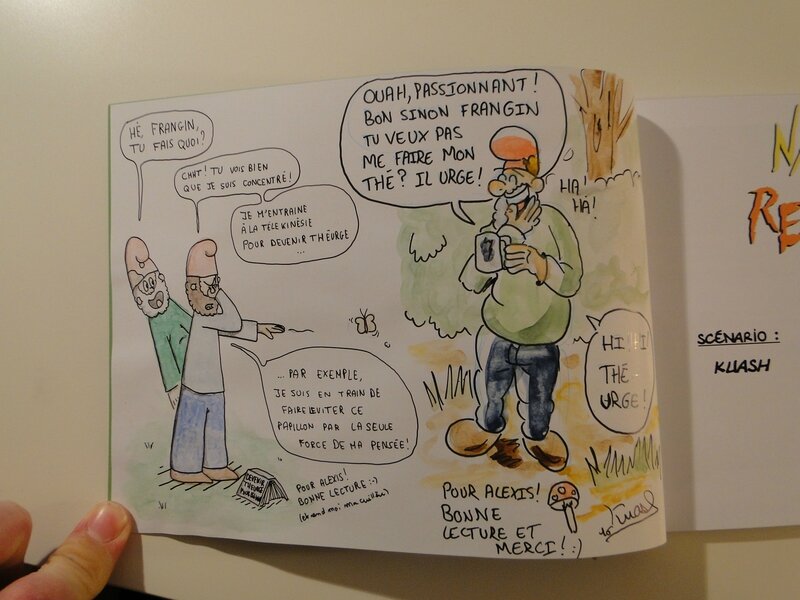 HÉ, FRANGIN,
TU FAIS QUOI?
CHHT! TU VOIS BIEN
QUE JE SUIS CONCENTRÉ!
JE M'ENTRAINE
À LA TÉLÉKINÉSIE
POUR DEVENIR THÉURGE
...
... PAR EXEMPLE,
JE SUIS EN TRAIN DE
FAIRE LEVITER CE
PAPILLON PAR LA SEULE
FORCE DE MA PENSÉE!
DEVENIR
THÉURGE
POUR
POUR ALEXIS!
BONNE LECTURE :-)
(et rend moi ma cuillère)
OUAH, PASSIONNANT!
BON SINON FRANGIN
TU VEUX PAS
ME FAIRE MON
THÉ? IL URGE!
HA!
HA!
HI HI
THÉ-
URGE!
POUR ALEXIS!
BONNE
LECTURE ET
MERCI! :)
Kuash
NA
RE
SCÉNARIO :
KUASH